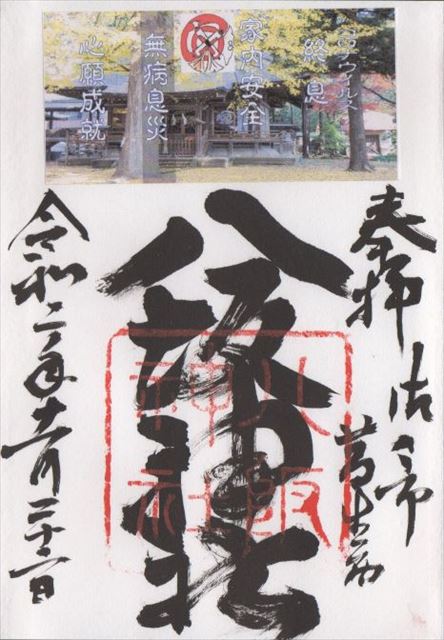 コロナウイルス
終息
家内安全
無病息災
心願成就
奉拝
八坂神社
八阪神社
令和二年十一月二十二日